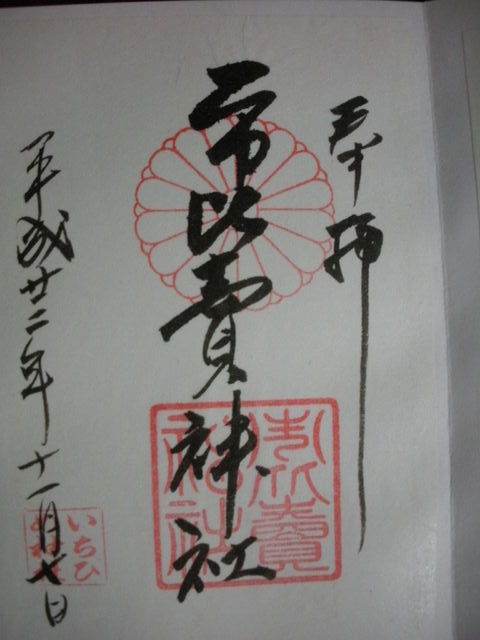 奉拝
市比賣神社
平成廿二年十一月七日
市比賣神社
いちひ